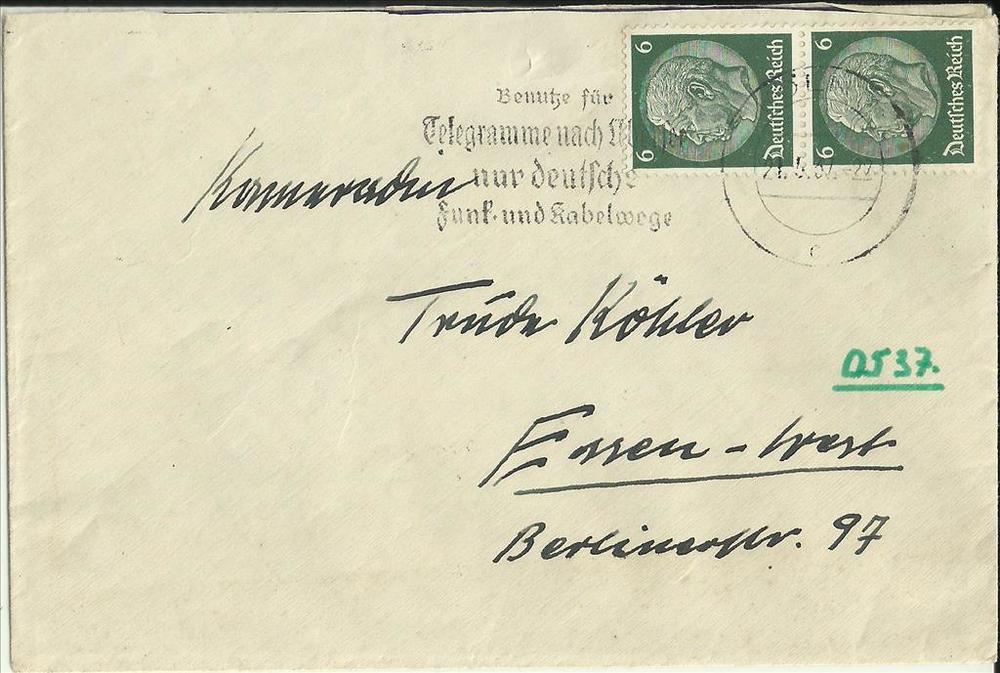 6 Deutsches Reich 6
6 Deutsches Reich 6
Benutze für
Telegramme nach
nur deutsche
Funk- und Kabelwege
21.5.37.-22
e
Kameradin
Trude Köhler
D537.
Essen-West
Berlinerstr. 97